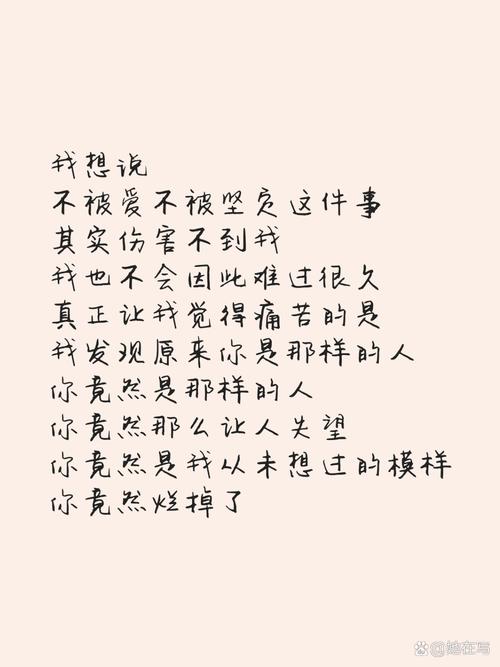 我想说
不被爱不被坚定这件事
其实伤害不到我
我也不会因此难过很久
真正让我觉得痛苦的是
我发现原来你是那样的人
你竟然是那样的人
你竟然那么让人失望
你竟然是我从未想过的模样
你竟然烂掉了
@她在写